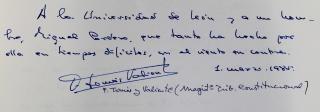 A la Universidad de León y a un hom-
bre, Miguel Cordero, que tanto ha hecho por
ella en tiempos difíciles, con el viento en contra.
1. marzo. 1985.
F. Tomás Valiente
F. Tomás y Valiente (Magistr. Trib. Constitucional)